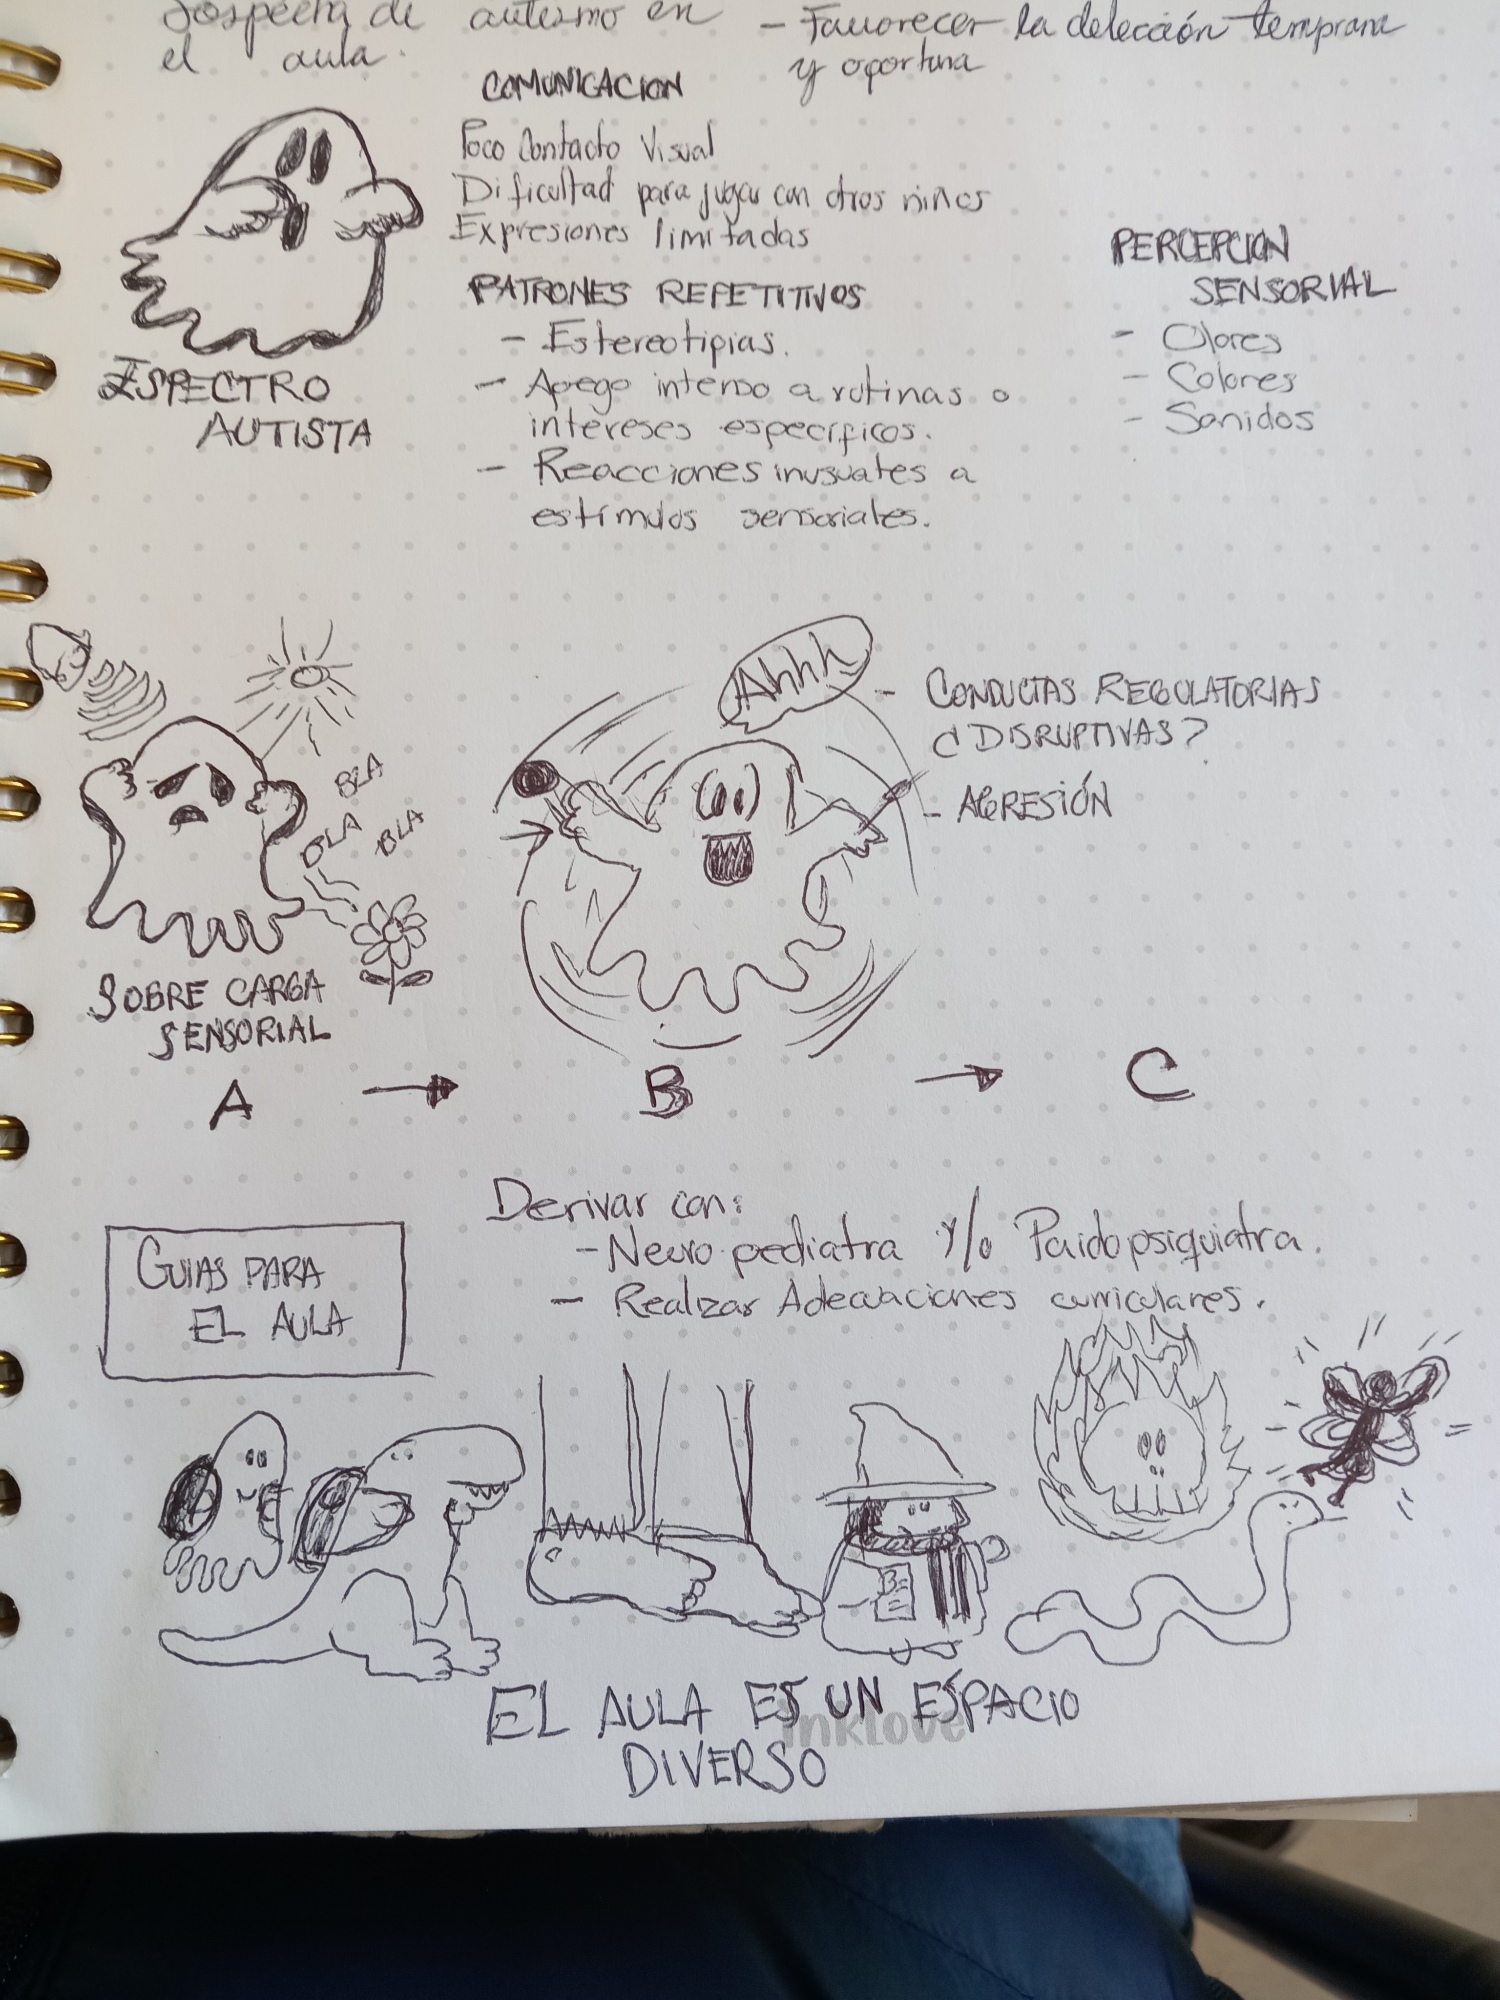 Sospecha de autismo en
el aula.
- Favorecer la detección temprana
y oportuna
COMUNICACION
Poco Contacto Visual
Dificultad para jugar con otros niños
Expresiones limitadas
PATRONES REPETITIVOS
- Estereotipias.
- Apego intenso a rutinas o
intereses específicos.
- Reacciones inusuales a
estímulos sensoriales.
PERCEPCION
SENSORIAL
- Olores
- Colores
- Sonidos
ESPECTRO
AUTISTA
BLA
BLA
BLA
SOBRE CARGA
SENSORIAL
Ahhh
- CONDUCTAS REGULATORIAS
¿DISRUPTIVAS?
- AGRESIÓN
A → B → C
GUIAS PARA
EL AULA
Derivar con:
- Neuro pediatra y/o Paidopsiquiatra.
- Realizar Adecuaciones curriculares.
EL AULA ES UN ESPACIO
DIVERSO
inklove